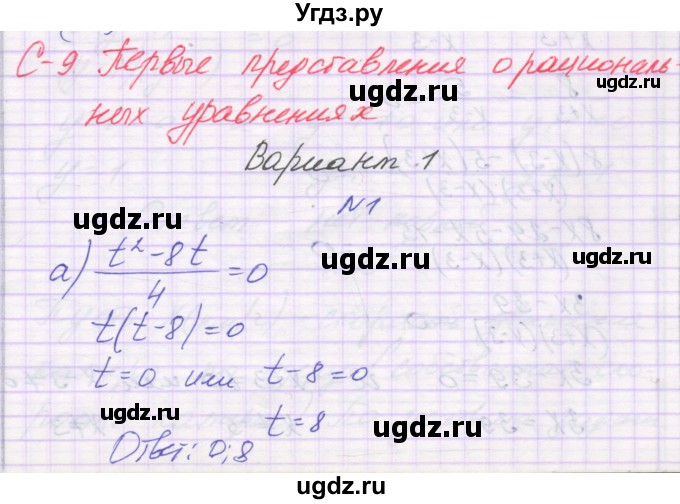 Угдз.ру
С-9 Первые представления о рациональ-
ных уравнениях
Вариант 1
№1
а) (t² - 8t)/4 = 0
t(t-8)=0
t=0 или t-8=0
t=8
Ответ: 0; 8
ugdz.ru
ugdz.ru
ugdz.ru
ugdz.ru
ugdz.ru
ugdz.ru
ugdz.ru
Угдз.ру